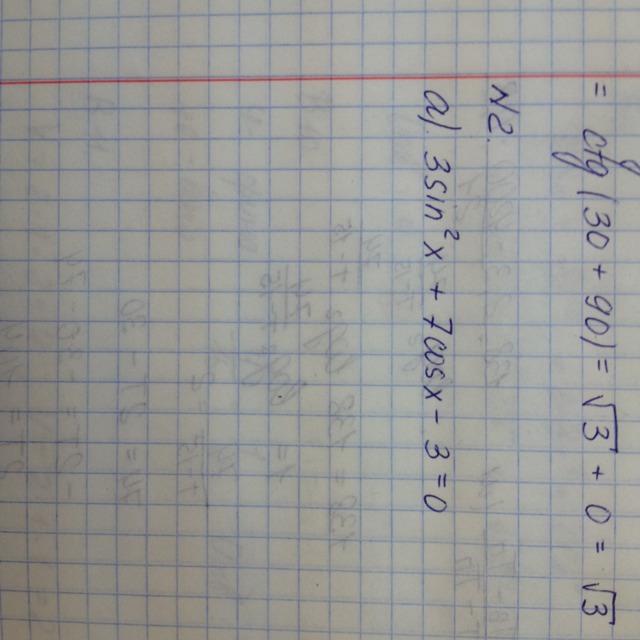 = ctg (30 + 90) = √3 + 0 = √3
N2.
a). 3sin²x + 7cosx - 3 = 0